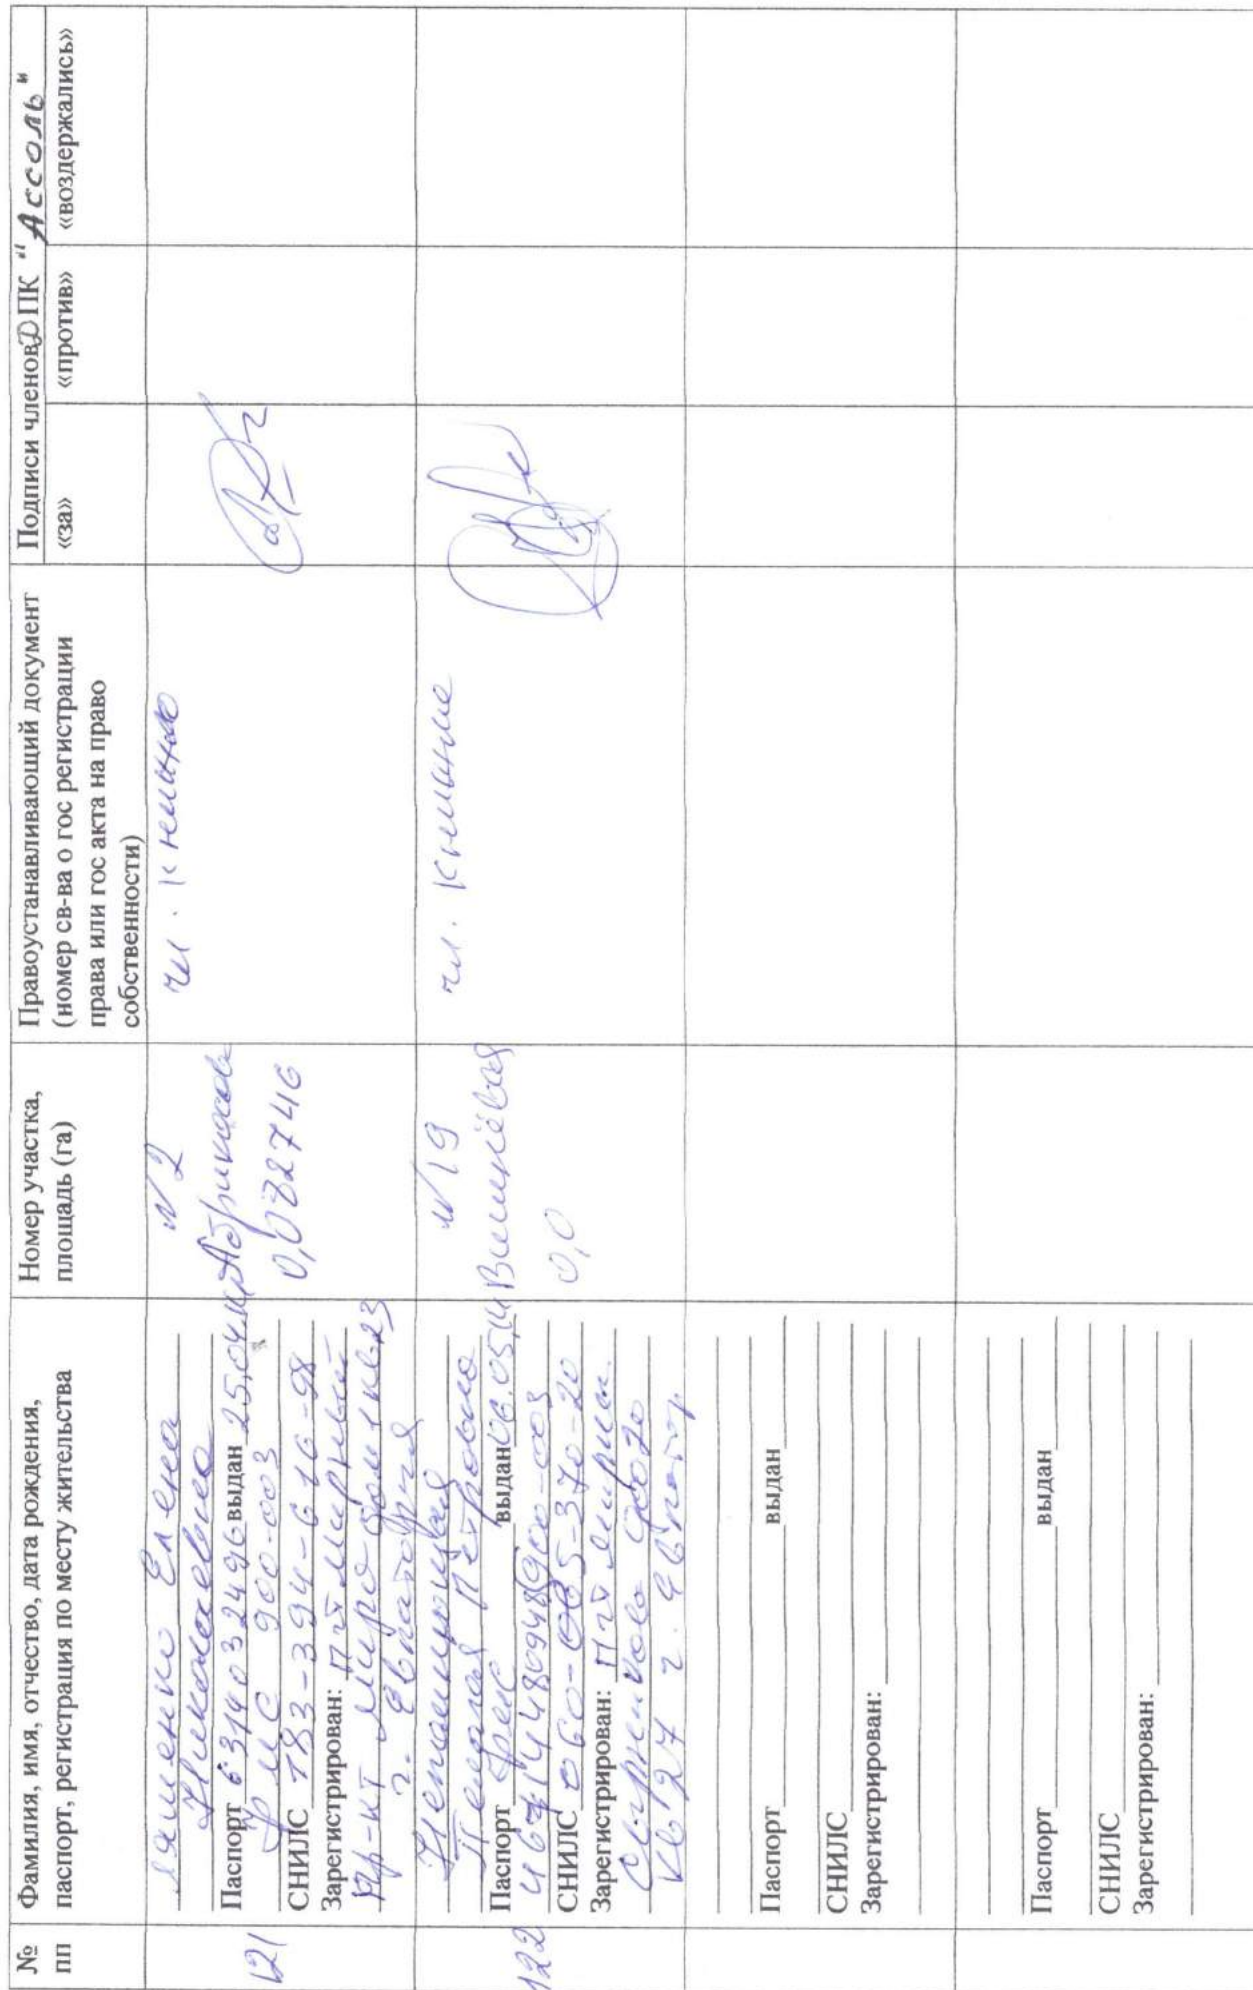 № пп
Фамилия, имя, отчество, дата рождения, паспорт, регистрация по месту жительства
Номер участка, площадь (га)
Правоустанавливающий документ (номер св-ва о гос регистрации права или гос акта на право собственности)
Подписи членов ДПК "Ассоль"
«за»
«против»
«воздержались»
121
Елена
Николаевна
Паспорт 6314032496 выдан 25.04.14
900-003
СНИЛС 183-394-616-98
Зарегистрирован: пгт Мирный
пр-кт Мира дом 1 кв 23
г. Евпатория
№ 2
Абрикосовая
0,082746
чл. книжка
122
Петровна
Паспорт выдан 06.05.14
900-003
СНИЛС 060-065-370-20
Зарегистрирован: пгт Мирн.
кв 27 г. Евпатор.
№ 19
Вишнёвая
0,0
чл. книжка
Паспорт выдан
СНИЛС
Зарегистрирован:
Паспорт выдан
СНИЛС
Зарегистрирован: